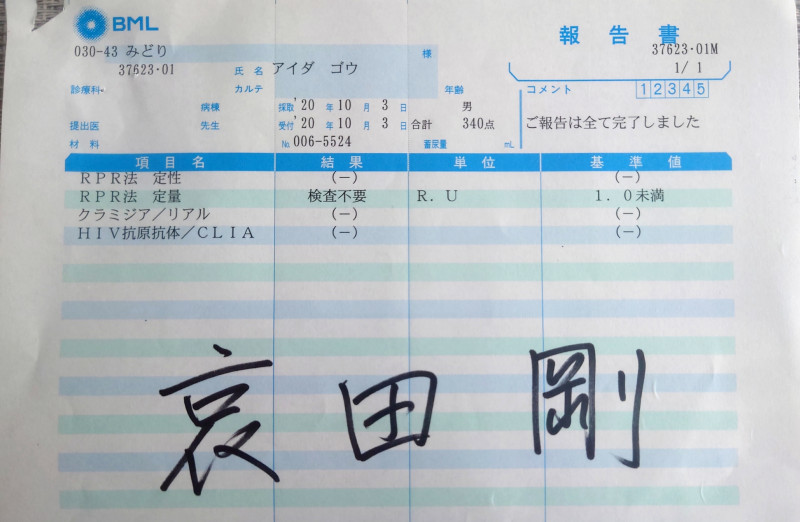 BML
報告書
030-43 みどり
様
37623・01M
37623・01
氏名 アイダ ゴウ
1/ 1
診療科
カルテ
年齢
コメント
1 2 3 4 5
病棟
採取 '20 年 10 月 3 日
男
提出医
先生
受付 '20 年 10 月 3 日
合計 340点
ご報告は全て完了しました
材料
No. 006-5524
蓄尿量 mL
項目名 結果 単位 基準値
RPR法 定性 (-) (-)
RPR法 定量 検査不要 R.U 1.0未満
クラミジア/リアル (-) (-)
HIV抗原抗体/CLIA (-) (-)
哀田 剛